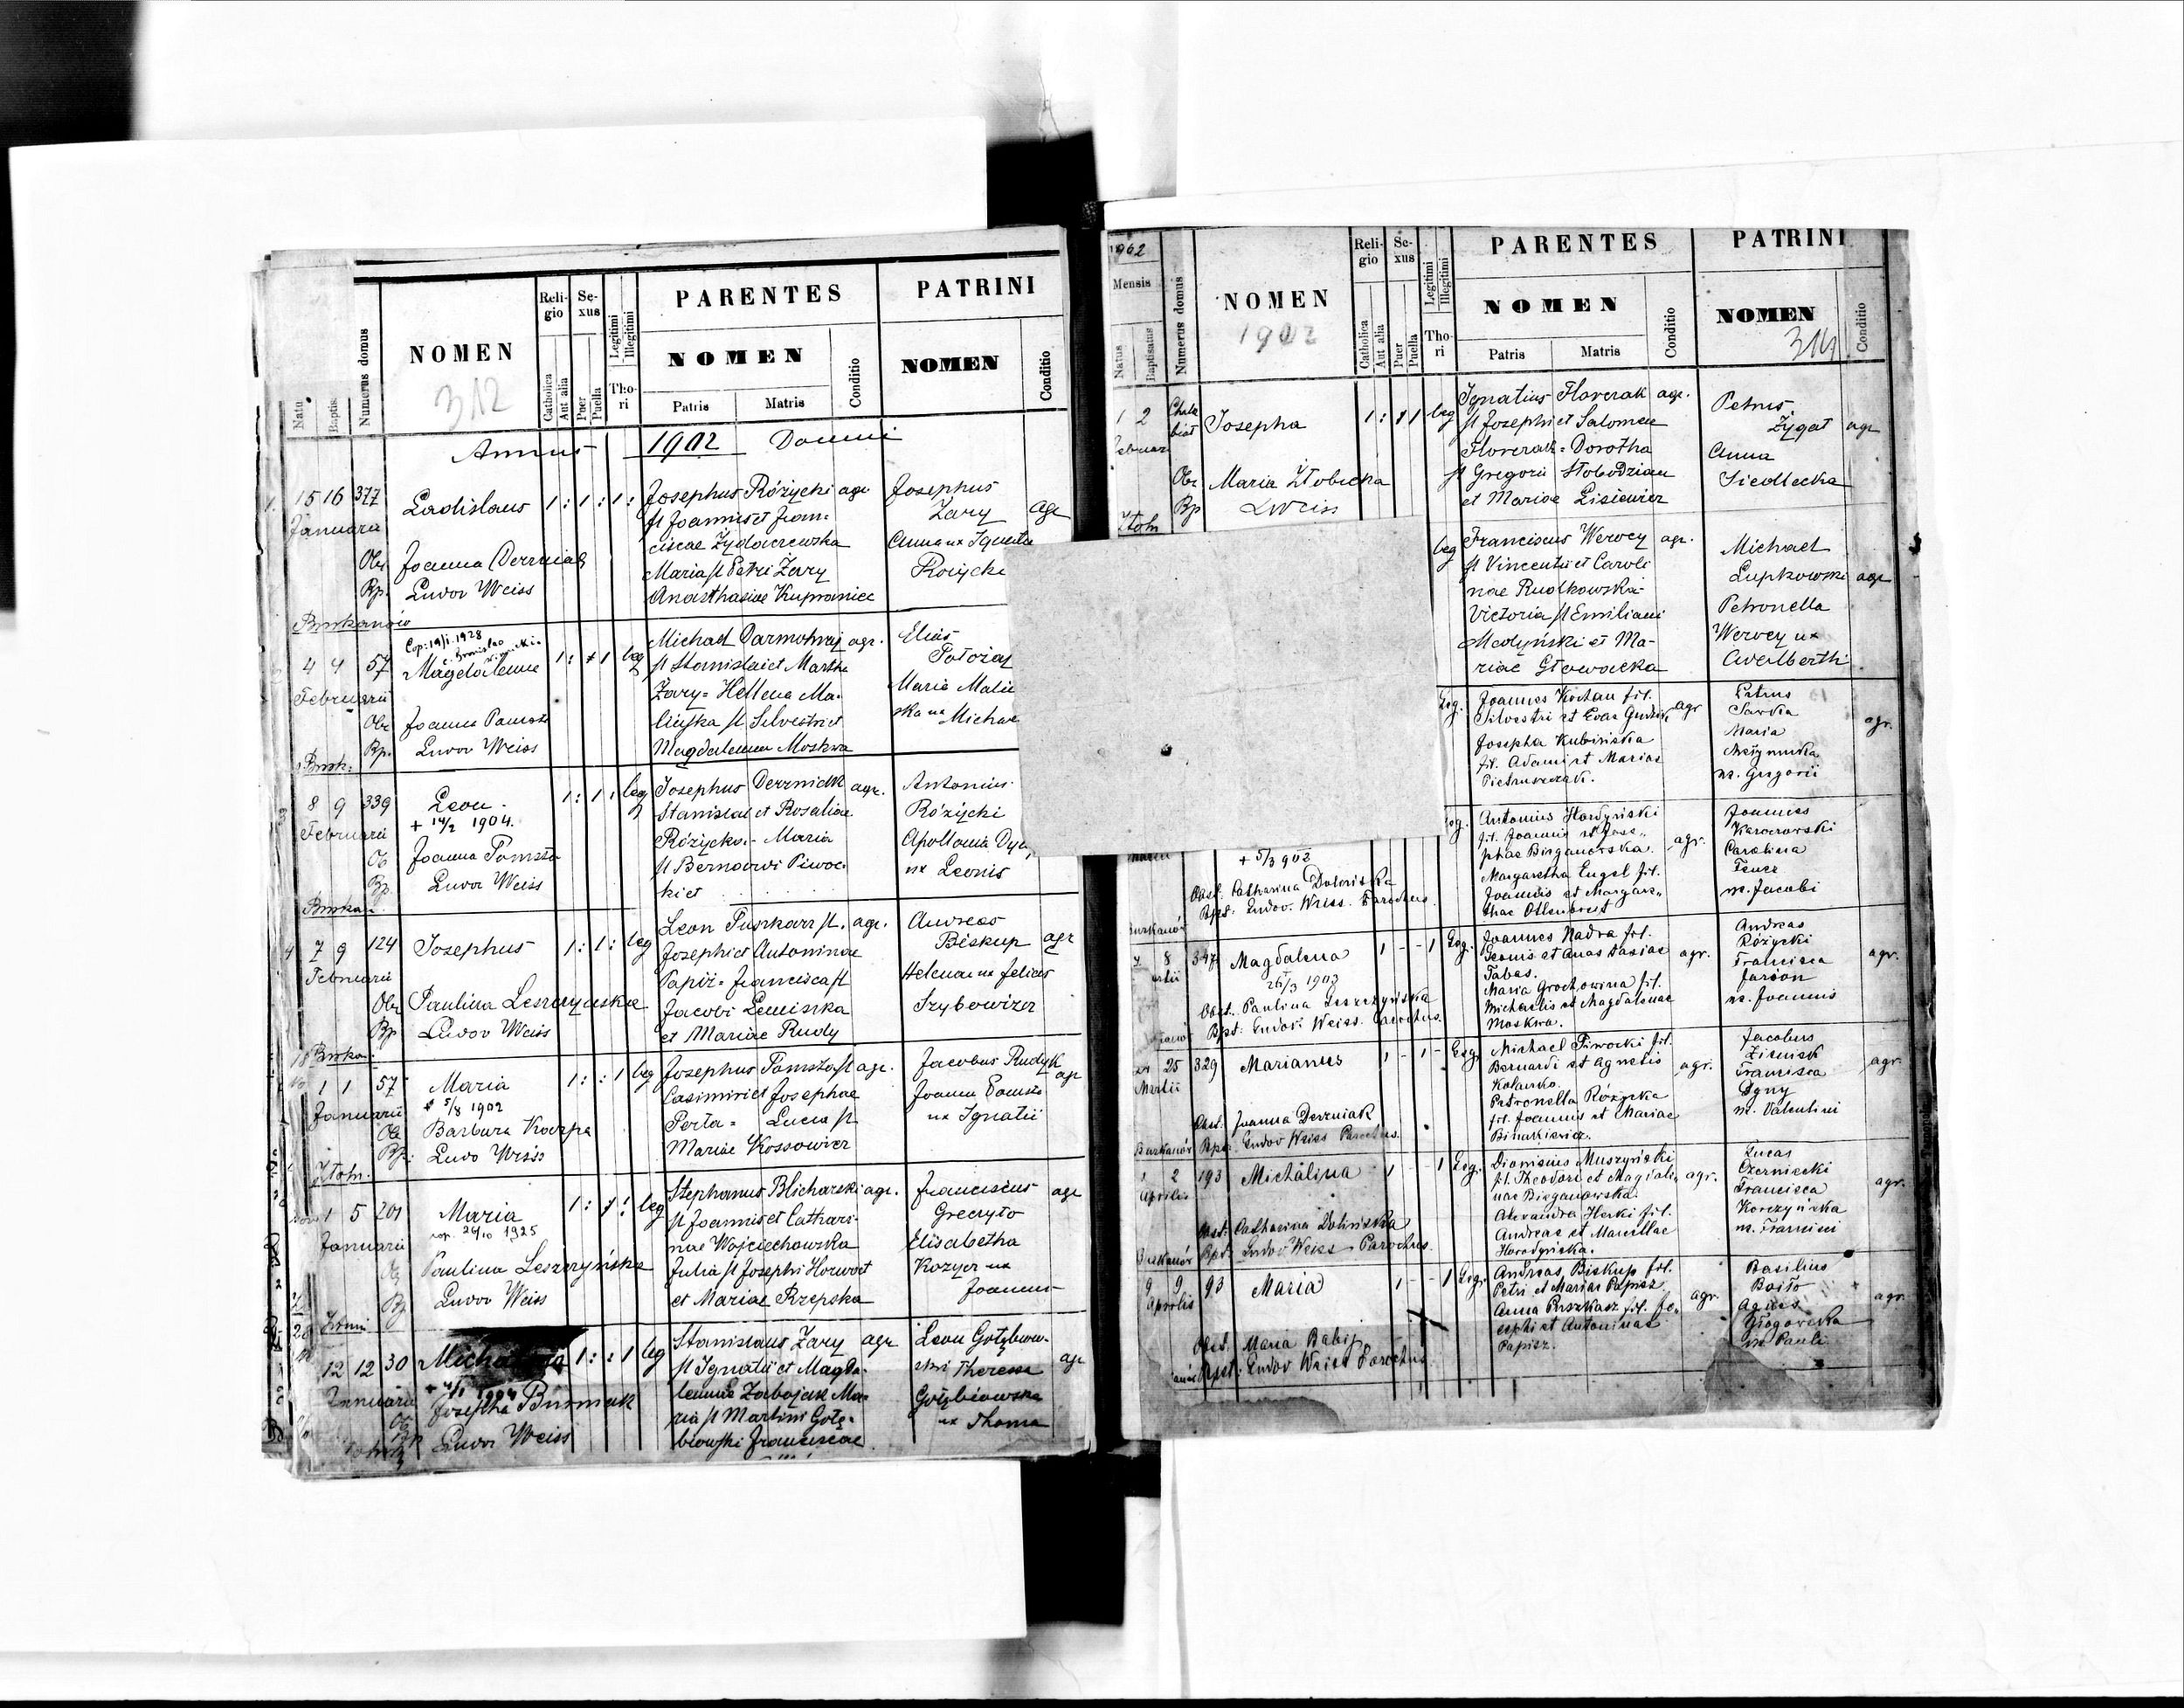 Natu
Baptis.
Numerus domus
NOMEN
312
Religio
Catholica
Aut alia
Sexus
Puer
Puella
Legitimi
Illegitimi
Thori
PARENTES
NOMEN
Patris
Matris
Conditio
PATRINI
NOMEN
Conditio
Annus 1902 Domini
1. 15 16 377 Ladislaus 1: 1: 1: Josephus Różycki agr Josephus
Januarii fl Joannis et Fran- Żary agr
ciscae Żydaczewska Anna ux Ignatii
Ob. Joanna Derzniak Maria fl Petri Żary Rożycki
Bp. Ludov Weiss Anasthasiae Kupraniec
Burkanów
Cop: 19/1 1928
4 4 57 Magdalena 1: 1 leg Michael Darmohraj agr. Elias
Februarii fl Stanislai et Martha
Żary = Hellena Ma- Maria
Ob. Joanna linska fl Silvestri et ska ux Michae
Bp. Ludov Weiss Magdalenna Moskwa
Burk:
8 9 339 Leon 1: 1: leg Josephus Derzniak agr. Antonius
Februarii + 14/2 1904. Stanislai et Rosaliae Różycki
Ob Joanna Pomszta Różycka - Maria Apollonia
Bp. Ludov Weiss fl Bernardi Piwoc- ux Leonis
ki et
Burka:
4 7 9 124 Josephus 1: 1: leg Leon Puszkarz fl. agr. Andreas
Februarii Josephi et Antoninae Biskup agr
Papiż = Francisca fl Helena ux Felicis
Ob Paulina Leszczyńska Jacobi Leniszka Szybowicz
Bp Ludov Weiss et Mariae Rudy
Burka:
1 1 57 Maria 1: : 1 leg Josephus Pomszta fl agr. Jacobus Rudyk agr
Januarii + 5/8 1902 Casimiri et Josephae Joanna Pomszta
Ob Barbara Koczpa Perta = Lucia fl ux Ignatii
Bp. Ludo Weiss Mariae Kossowicz
Złotn.
1 5 201 Maria leg Stephanus Blicharski agr. Franciscus agr
cop. 26/10 1925 fl Joannis et Cathari- Greczyło
Januarii nae Wojciechowska Elisabetha
Ob Paulina Leszczyńska Julia fl Josephi Horwat Kozyra ux
Bp Ludov Weiss et Mariae Rzepska Joannes
12 12 30 1: : 1 leg Stanislaus Żary agr Leon Gołębiow-
Januarii 1904 fl Ignatii et Magda- ski Theresa agr
Ob Josepha Burniak lennae Zabojak Ma- Gołębiowska
Bp Ludov Weiss ria fl Martini Gołę- ux Thoma
biowski Franciscae
1902
Mensis
Natus
Baptisatus
Numerus domus
NOMEN
1902
Religio
Catholica
Aut alia
Sexus
Puer
Puella
Legitimi
Illegitimi
Thori
PARENTES
NOMEN
Patris
Matris
Conditio
PATRINI
NOMEN
314
Conditio
1 2 Josepha 1: 1 leg Ignatius Florczak agr. Petrus
fl Josephi et Salomeae Zygał agr
Florczak = Dorotha Anna
Ob. Maria Żłobicka fl Gregorii Słobodzian Siedlecka
Bp L Weiss et Mariae Lisiewicz
Złotn
leg Franciscus Werocy agr. Michael
fl Vincentii et Caroli Lupkowski agr
nae Rudkowska- Petronella
Victoria fl Emiliani Werocy ux
Medyński et Ma- Adalberthi
riae Głowacka
Leg. Joannes Kochan fil. agr Petrus
Silvestri et Evae Sawka agr.
Josepha Kubińska Maria
fil. Adami et Mariae
Pietruszczak. ux. Gregorii
Leg. Antonius Hordyński Joannes
fil. Joannis et Jose- Karczewski
phae Bieganowska. agr. Carolina
+ 5/3 902 Margaretha Engel fil. Tencz
Obst. Catharina Dolińska Joannis et Margare- ux. Jacobi
Bpt: Ludov. Weiss. Parochus. thae Ottenbreit
Burkanów
7 8 347 Magdalena 1 - - 1 Leg. Joannes Nadra fil. Andreas
26/3 1903 Leonis et Anastasiae agr. Różycki agr.
Tabas. Francisca
Obst. Paulina Leszczyńska Maria Grochowina fil. Jarson
Bpt: Ludov. Weiss. Parochus. Michaelis et Magdalenae ux. Joannis
Moskwa.
25 329 Marianus 1 - 1 - Leg. Michael Piwocki fil. Jacobus
Martii Bernardi et Agnetis agr. Ziemiak agr.
Kolanko. Francisca
Petronella Różycka Dyny
Obst. Joanna Derzniak fil. Joannis et Mariae ux. Valentini
Burkanów Bpt. Ludov Weiss Parochus. Biniakiewicz.
1 2 193 Michalina 1 - - 1 Leg. Dionisius Muszyński Lucas
Aprilis fil. Theodori et Magdale- agr. Czerniecki agr.
nae Bieganowska. Francisca
Alexandra Herki fil. Korczyńska
Obst: Catharina Dolińska Andreae et Marcellae ux. Francisci
Burkanów Bpt. Ludov Weiss Parochus. Horodyńska.
9 9 93 Maria 1 - - 1 Leg. Andreas Biskup fil. Basilius
Aprilis Petri et Mariae Papisz agr. Boiło agr.
Anna Puszkarz fil. Jo- Agnes
sephi et Antoninae Głogowska
Obst. Maria Babij Papisz. ux. Pauli
Bpt: Ludov Weiss Parochus